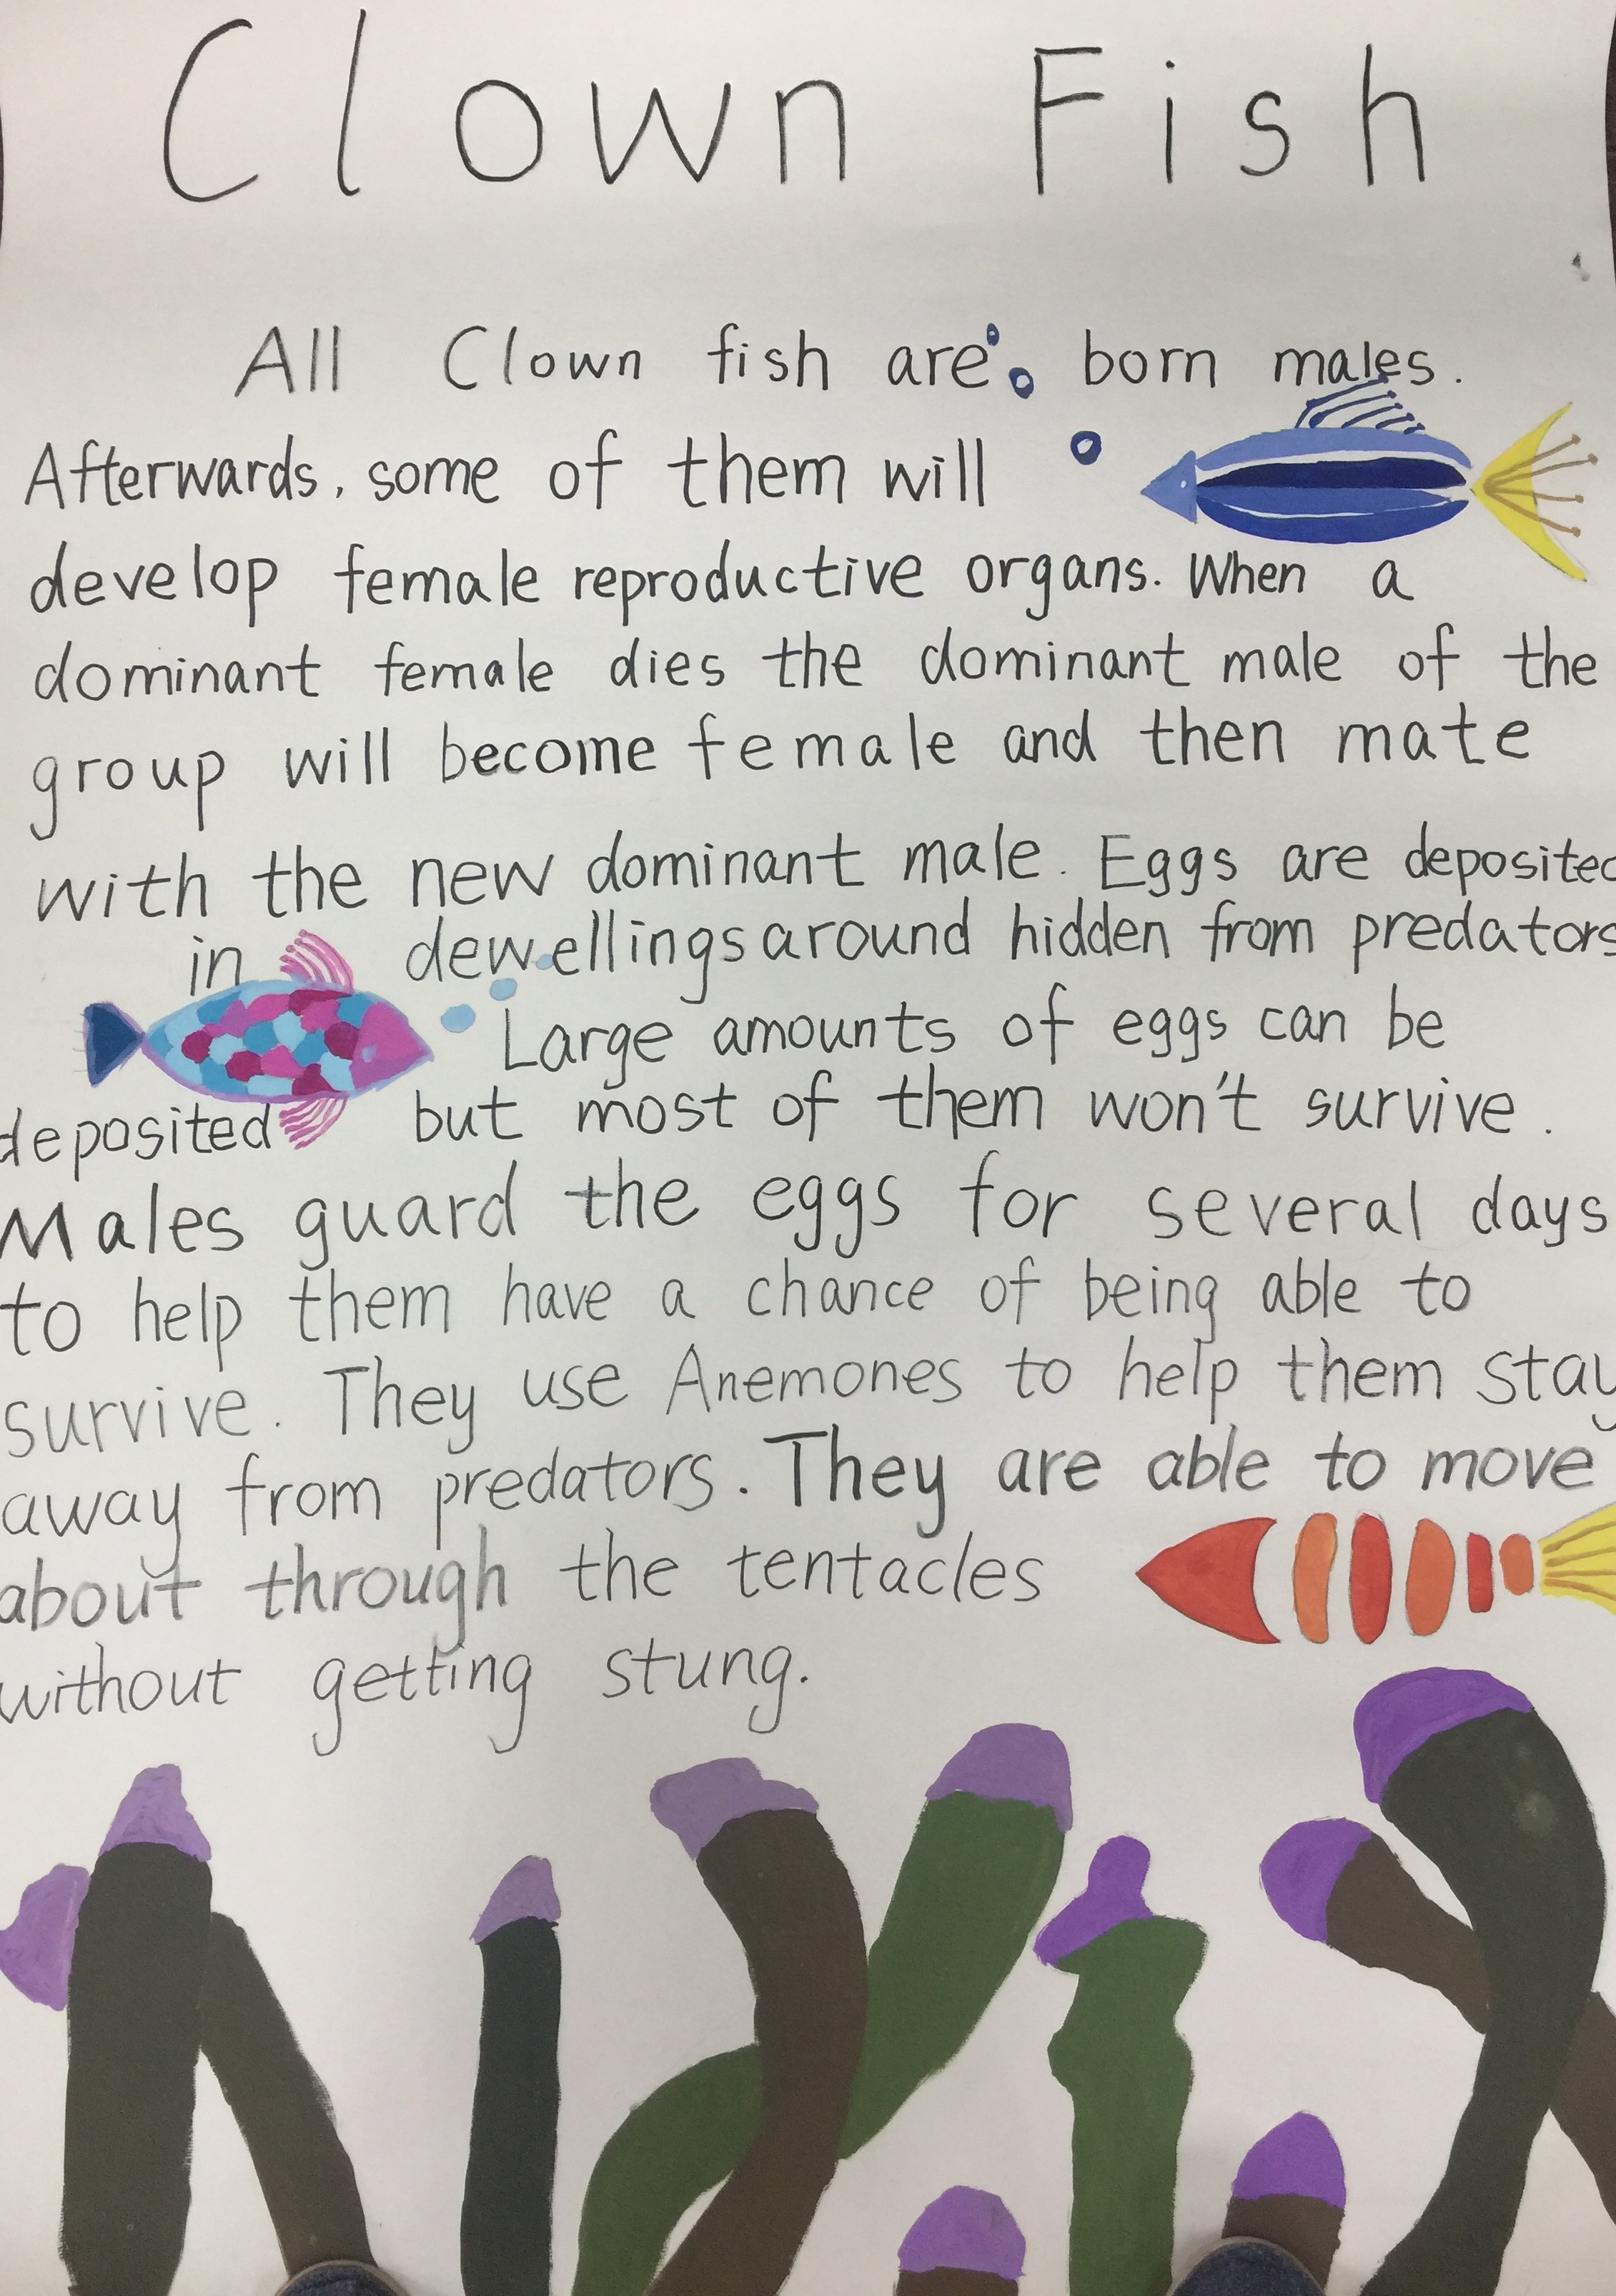 Clown Fish
All Clown fish are born males.
Afterwards, some of them will
develop female reproductive organs. When a
dominant female dies the dominant male of the
group will become female and then mate
with the new dominant male. Eggs are deposited
in dewellings around hidden from predators
Large amounts of eggs can be
deposited but most of them won't survive.
Males guard the eggs for several days
to help them have a chance of being able to
survive. They use Anemones to help them stay
away from predators. They are able to move
about through the tentacles
without getting stung.